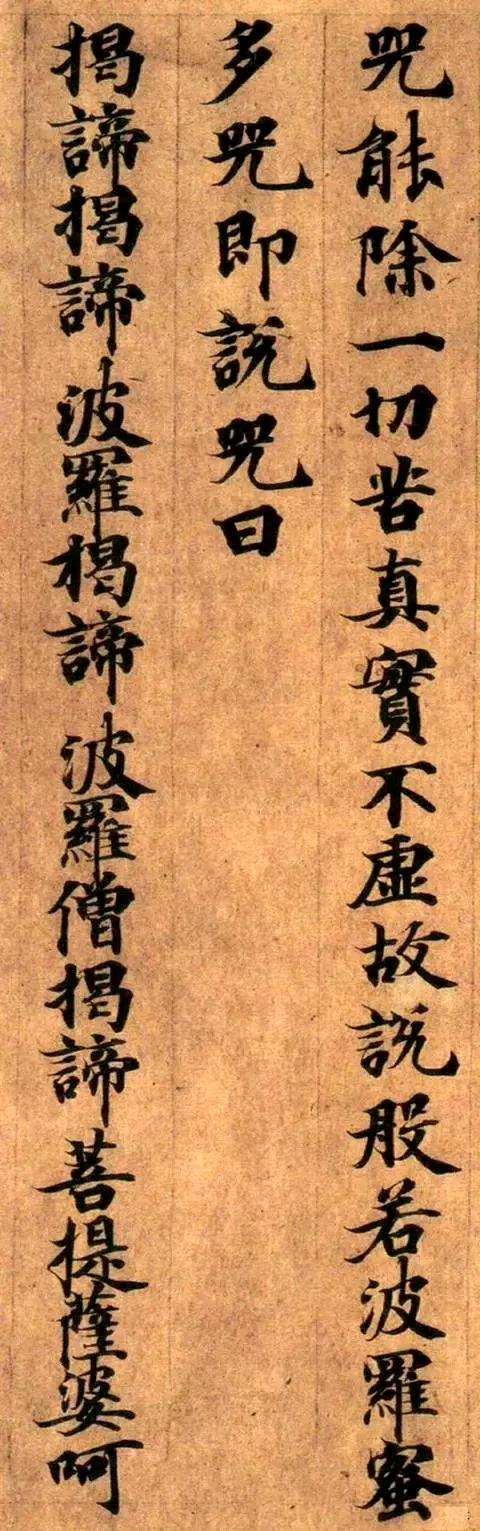 咒能除一切苦真實不虛故說般若波羅蜜
多咒即說咒曰
揭諦揭諦波羅揭諦波羅僧揭諦菩提薩婆呵